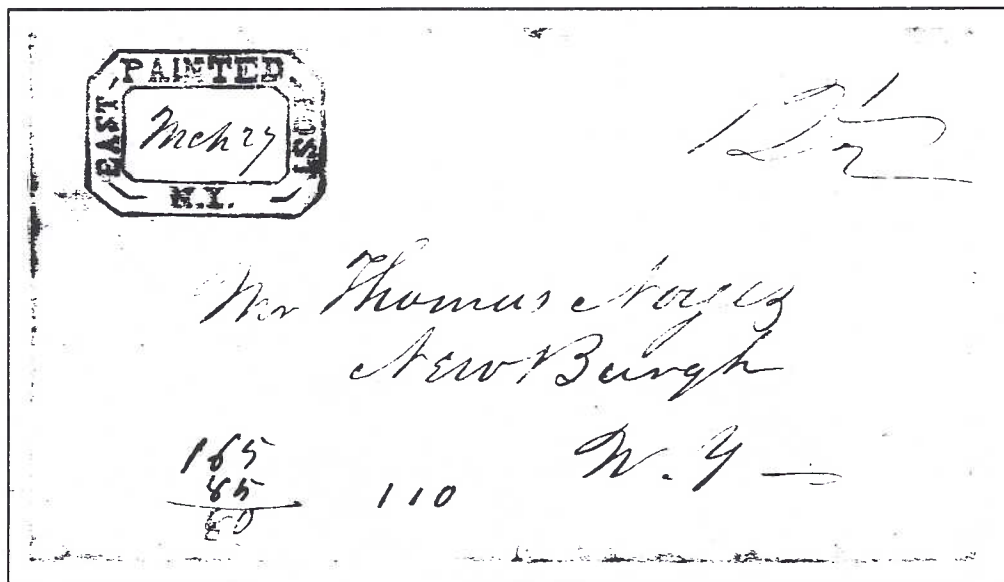 EAST PAINTED POST
Mch 27
N.Y.
12½
Mr Thomas Noyes
New Burgh
N. Y
165
85
80
110